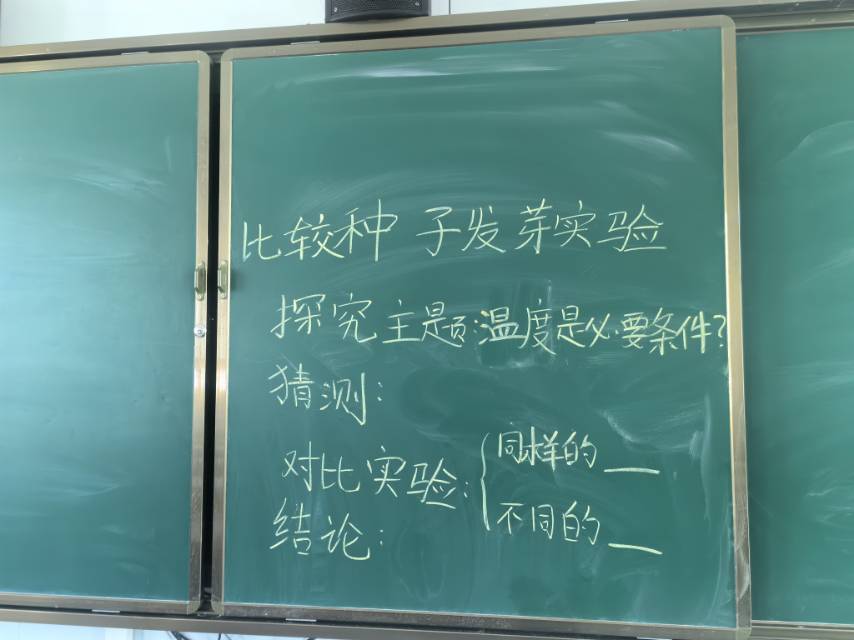 比较种子发芽实验
探究主题:温度是必要条件?
猜测:
对比实验:{同样的__
不同的__
结论: